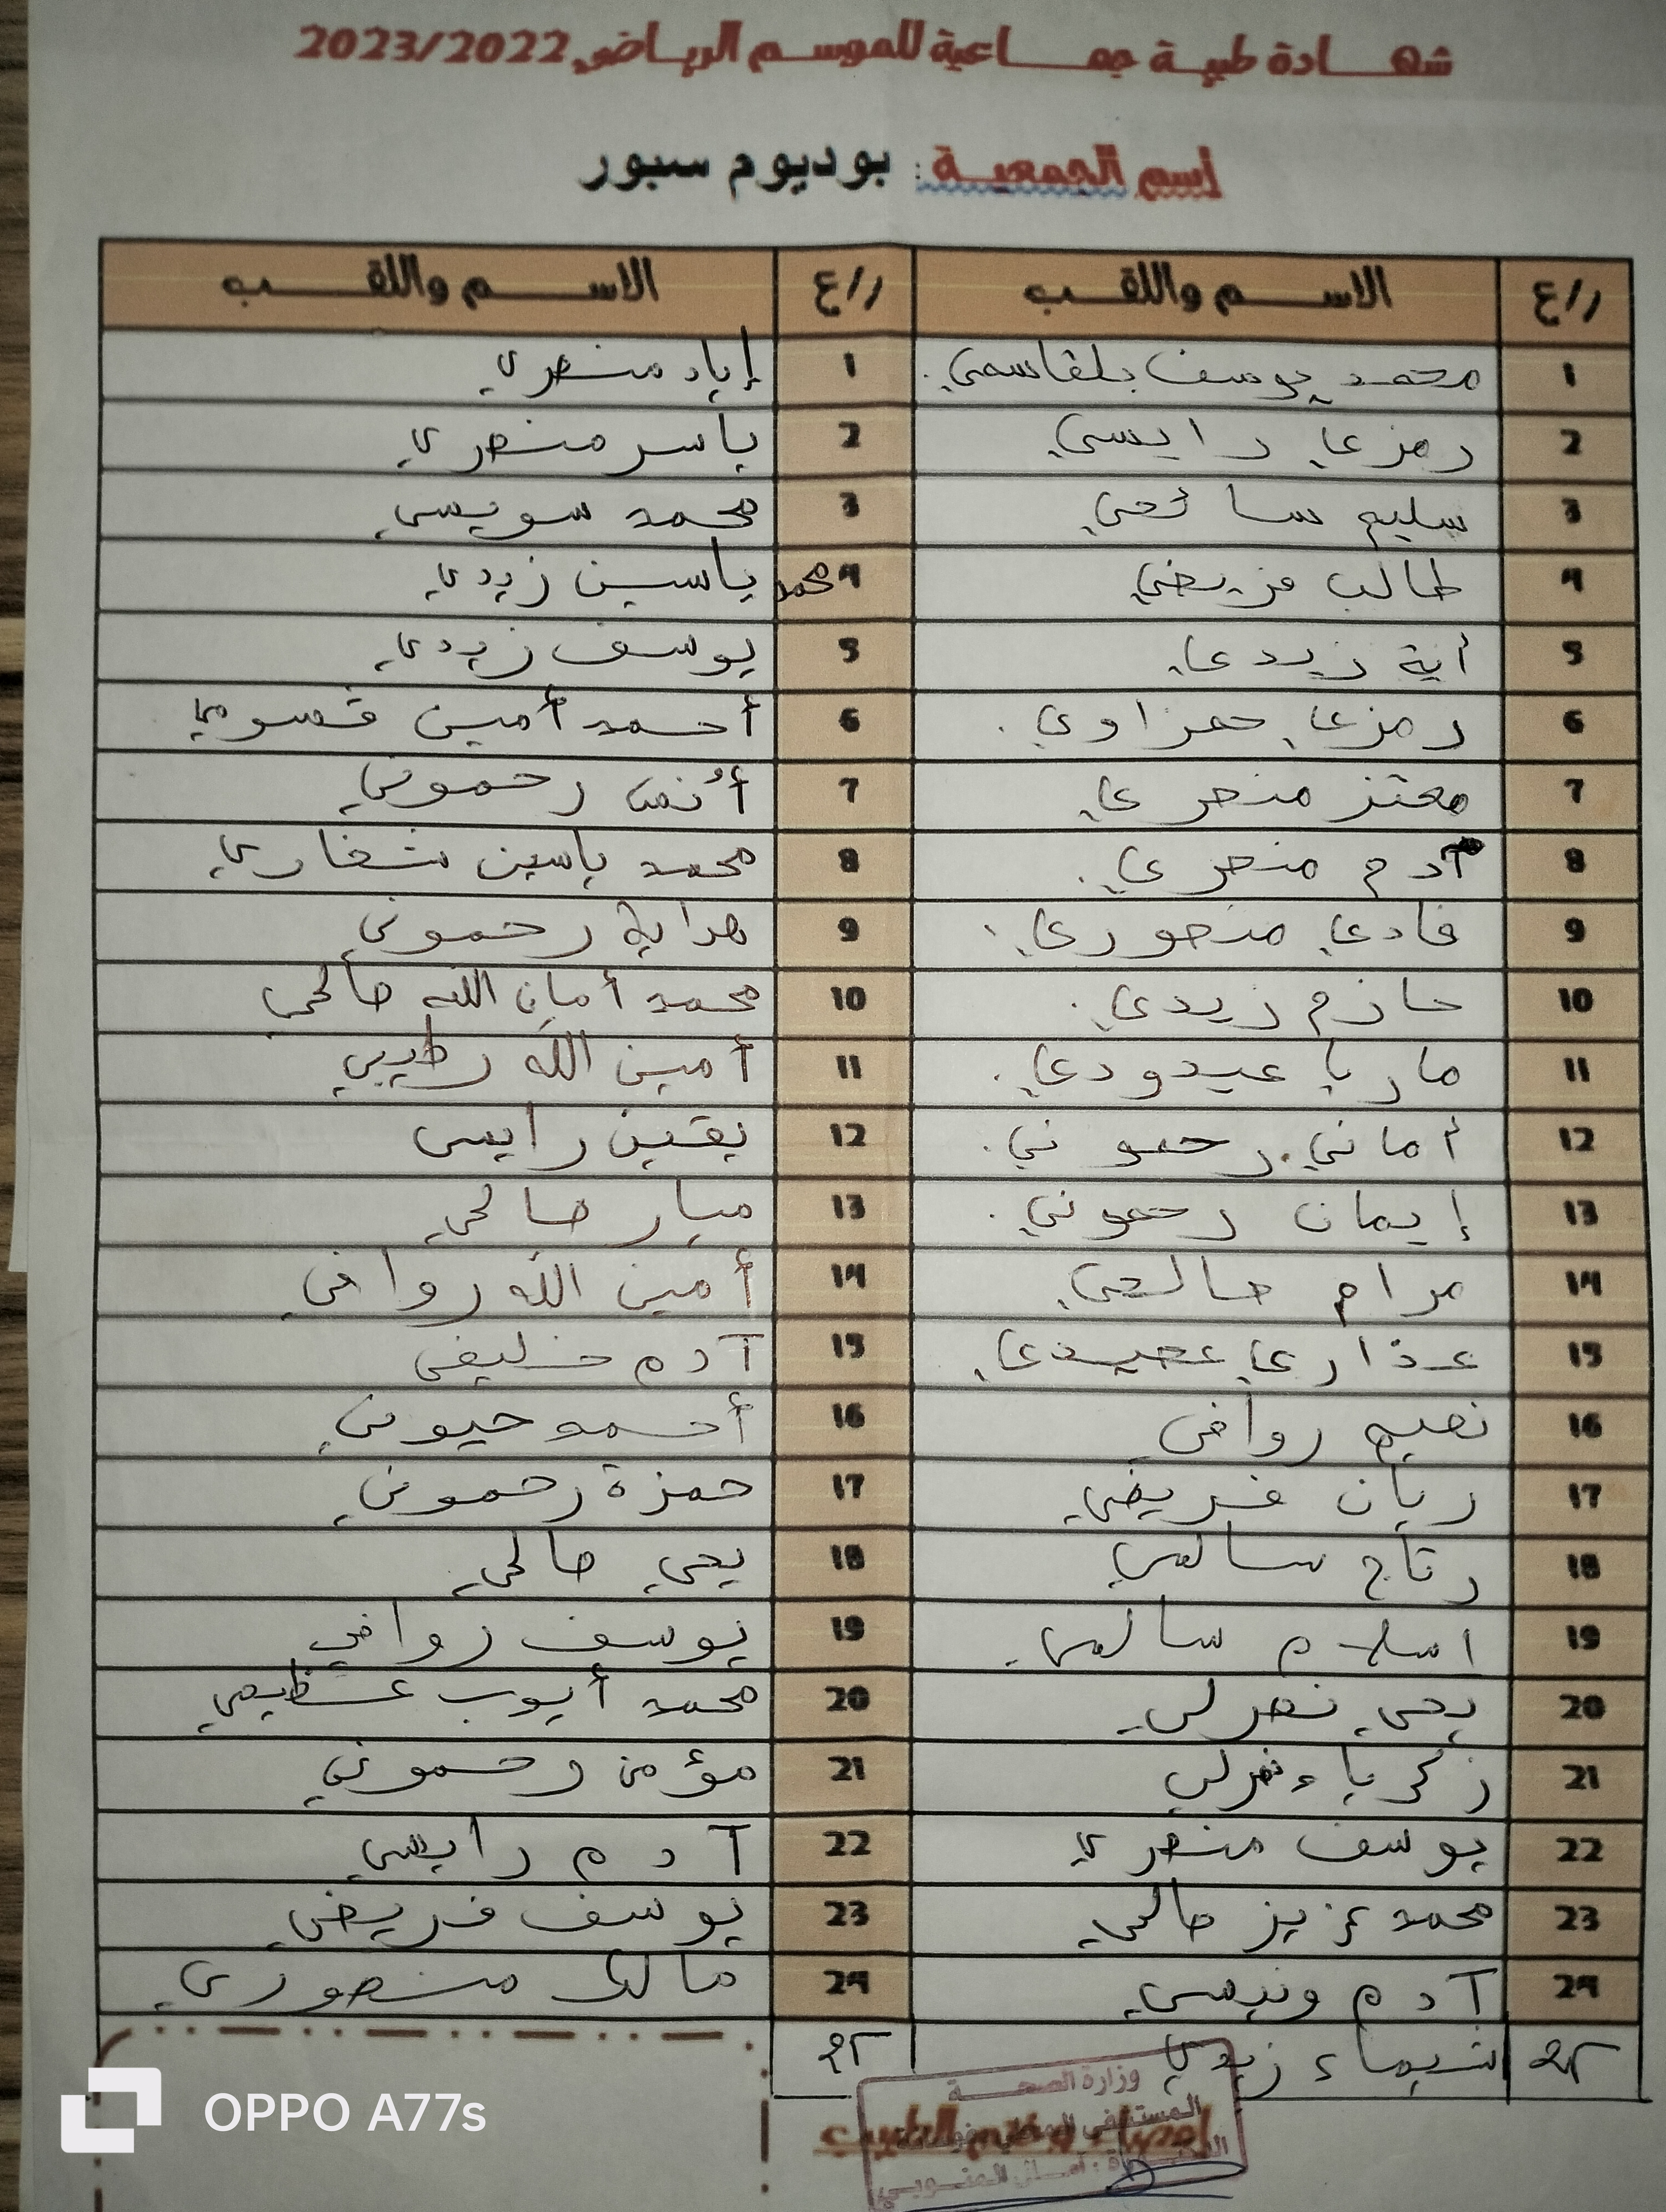 شهـــادة طبيـة جمـــاعية للموسـم الرياضي 2023/2022
إسم الجمعيـة : بوديوم سبور
ر/ع الاســـم واللقـــب ر/ع الاســـم واللقـــب
1 محمد يوسف بلقاسمي 1 إياد منصري
2 رمزي رايسي 2 ياسر منصري
3 سليم سائحي 3 محمد سويسي
4 طالب فريضي 4 محمد ياسين زيدي
5 أية زيدي 5 يوسف زيدي
6 رمزي حمزاوي 6 أحمد أمين قسومي
7 معتز منصري 7 أنس رحموني
8 آدم منصري 8 محمد ياسين شغاري
9 فادي منصوري 9 هداية رحموني
10 حازم زيدي 10 محمد أمان الله صالحي
11 ماريا عيدودي 11 أمين الله رطيبي
12 أماني رحموني 12 يقين رايسي
13 إيمان رحموني 13 ميار صالحي
14 مرام صالحي 14 أمين الله روافي
15 عذاري 15 آدم خليفي
16 نعيم روافي 16 أحمد حيوني
17 ريان فريضي 17 حمزة رحموني
18 رتاج سالمي 18 يحي صالحي
19 اسلام سالمي 19 يوسف روافي
20 يحي نصرلي 20 محمد أيوب عظيمي
21 زكرياء نصرلي 21 مؤمن رحموني
22 يوسف منصري 22 آدم رايسي
23 محمد عزيز صالحي 23 يوسف فريضي
24 آدم ونيسي 24 مالك منصوري
25 شيماء زيدي 25
وزارة الصحـــة
المستشفى المحلي
إمضاء وختم الطبيب
OPPO A77s